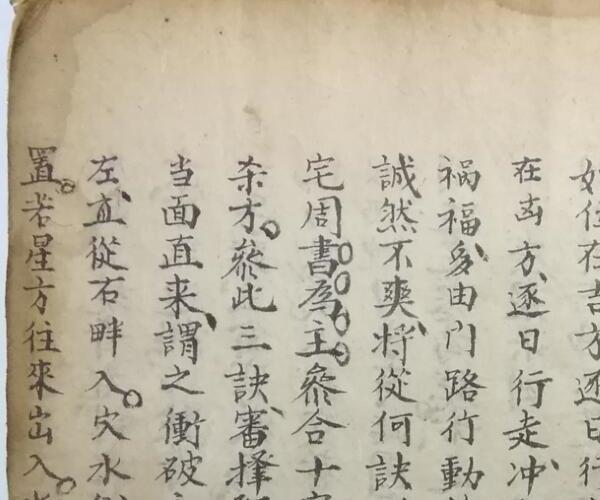 如住在吉方逐日行
在凶方逐日行走冲
祸福多由门路行動
誠然不爽将從何訣
宅周書為主叅合十
杀方叅此三訣審擇
当面直来謂之衝破
左直從右畔入穴水
置若星方往來出入